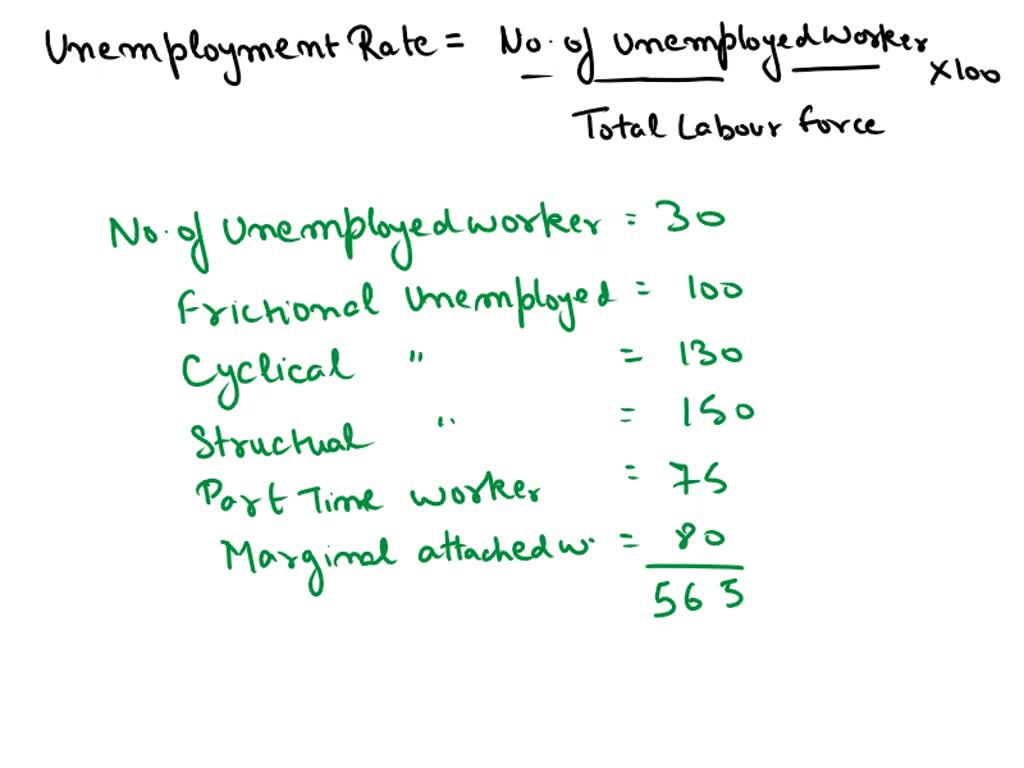 Unemployment Rate = No. of Unemployed worker × 100
Total Labour force
No. of Unemployed worker = 30
Frictional Unemployed = 100
Cyclical " = 130
Structual " = 150
Part Time worker = 75
Marginal attached w. = 80
565